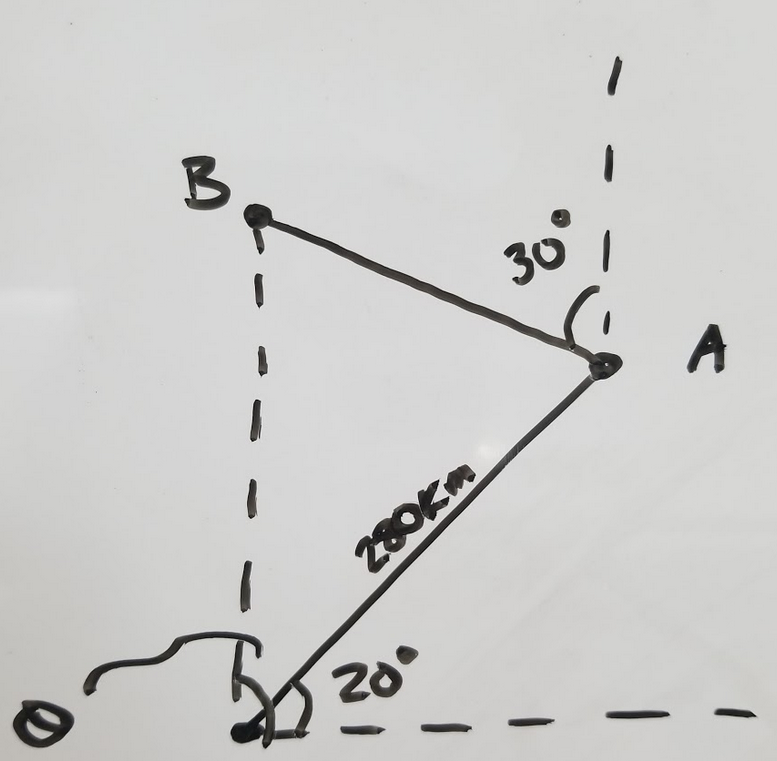 B
30°
A
280Km
20°
θ